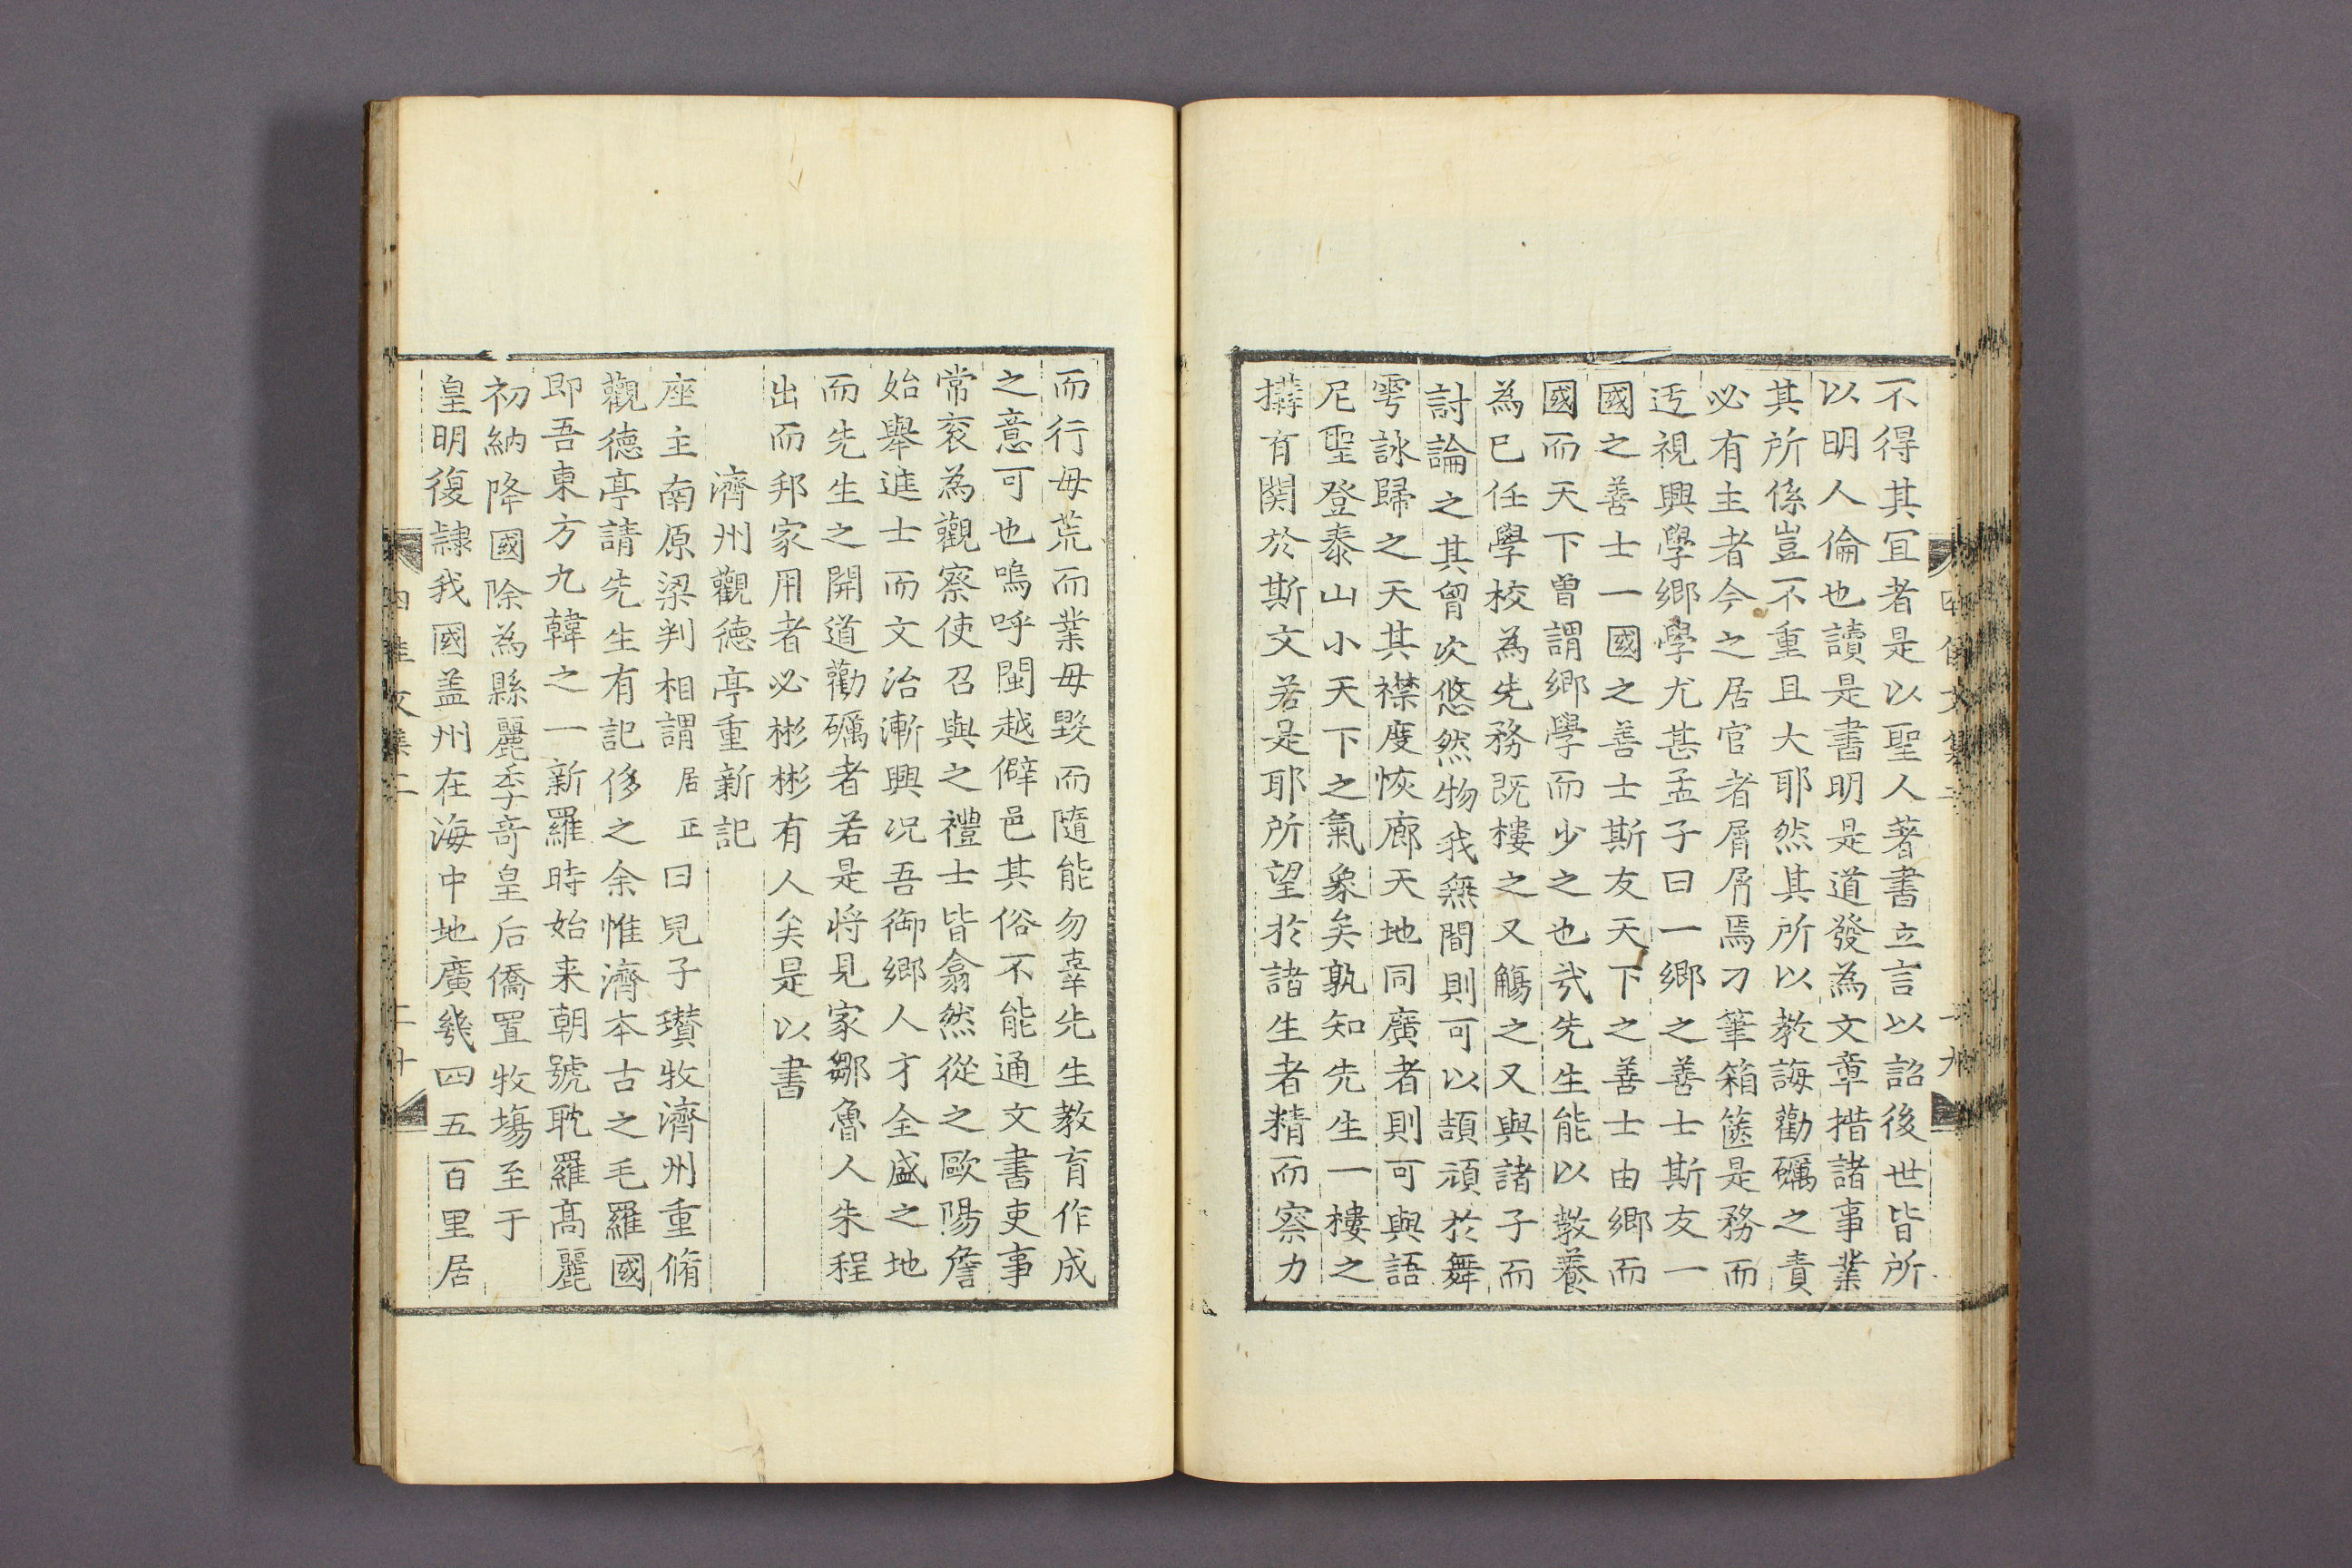 不得其宜者是以聖人著書立言以詔後世皆所
以明人倫也讀是書明是道發為文章措諸事業
其所係豈不重且大耶然其所以教誨勸礪之責
必有主者今之居官者屑屑焉刀筆箱篋是務而
迃視興學鄉學尤甚孟子曰一鄉之善士斯友一
國之善士一國之善士斯友天下之善士由鄉而
國而天下曾謂鄉學而少之也㢤先生能以敎養
為已任學校為先務既樓之又觴之又與諸子而
討論之其胷次悠然物我無間則可以頡頏於舞
雩詠歸之天其襟度恢廓天地同廣者則可與語
尼聖登泰山小天下之氣象矣孰知先生一樓之
搆有関於斯文若是耶所望於諸生者精而察力
而行毋荒而業毋毀而隨能勿辜先生教育作成
之意可也嗚呼閩越僻邑其俗不能通文書吏事
常衮為觀察使召與之禮士皆翕然從之歐陽詹
始舉進士而文治漸興况吾御鄉人才全盛之地
而先生之開道勸礪者若是將見家鄒魯人朱程
出而邦家用者必彬彬有人矣是以書
濟州觀德亭重新記
座主南原梁判相謂居正曰兒子瓚牧濟州重脩
觀德亭請先生有記侈之余惟濟本古之毛羅國
即吾東方九韓之一新羅時始来朝號耽羅髙麗
初納降國除為縣麗季竒皇后僑置牧場至于
皇明復隷我國盖州在海中地廣幾四五百里居
四佳文集二
二十